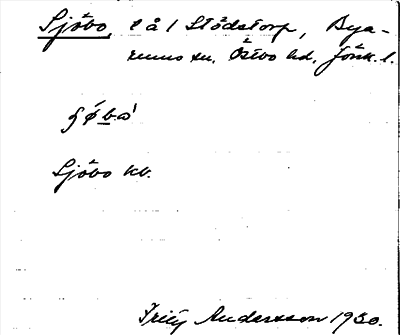 Sjöbo, l å 1 Stödstorp, Bya-
rums sn. Östbo hd, Jönk. l.
Sjöbo kv.
Fritz Andersson 1930.